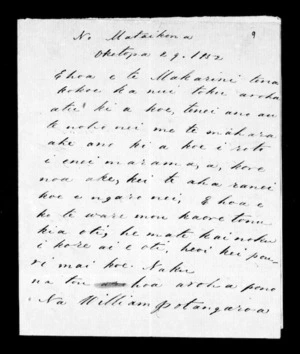 No Mataikona 9
Oketopa 29. 1852
Ehoa e te Makarini tena
kokoe ka nui toku aroha
atu ki a koe, tenei ano au
te noho nei me te mahara
ake ano ki a koe i roto
i enei marama, a, hore
noa ake, kei te aha ranei
koe e ngaro nei, E hoa e
ko te ware mou kaore tonu
kia oti, he mate kai noku
i hore ai e oti, heoi kei pou
ri mai koe. Naku
na tou hoa aroha pono
Na William Potangaroa